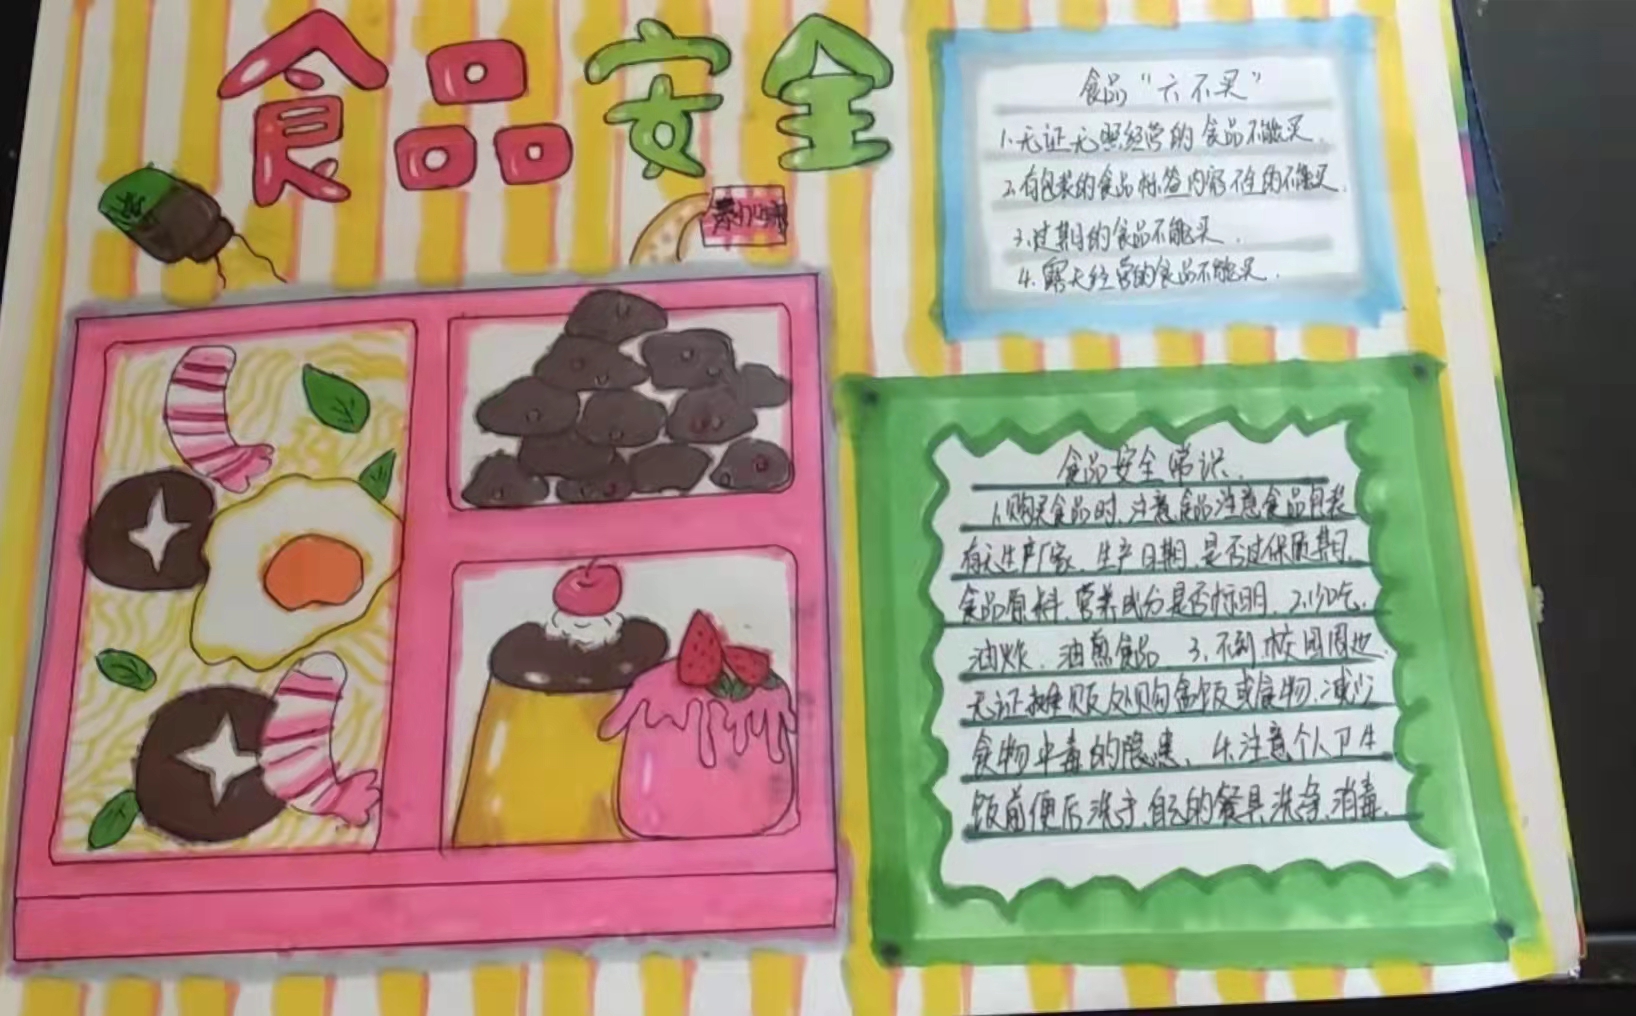 食品安全
食品“六不买”
1.无证无照经营的食品不能买.
2.有包装的食品标签内容不全的不能买.
3.过期的食品不能买.
4.露天经营的食品不能买.
食品安全常识.
1.购买食品时,注意食品注意食品包装
有无生产厂家、生产日期,是否过保质期,
食品原料、营养成分是否标明. 2.少吃.
油炸、油煎食品 3.不到校园周边
无证摊贩处购盒饭或食物.减少
食物中毒的隐患、4.注意个人卫生
饭前便后洗手,自己的餐具洗净,消毒.